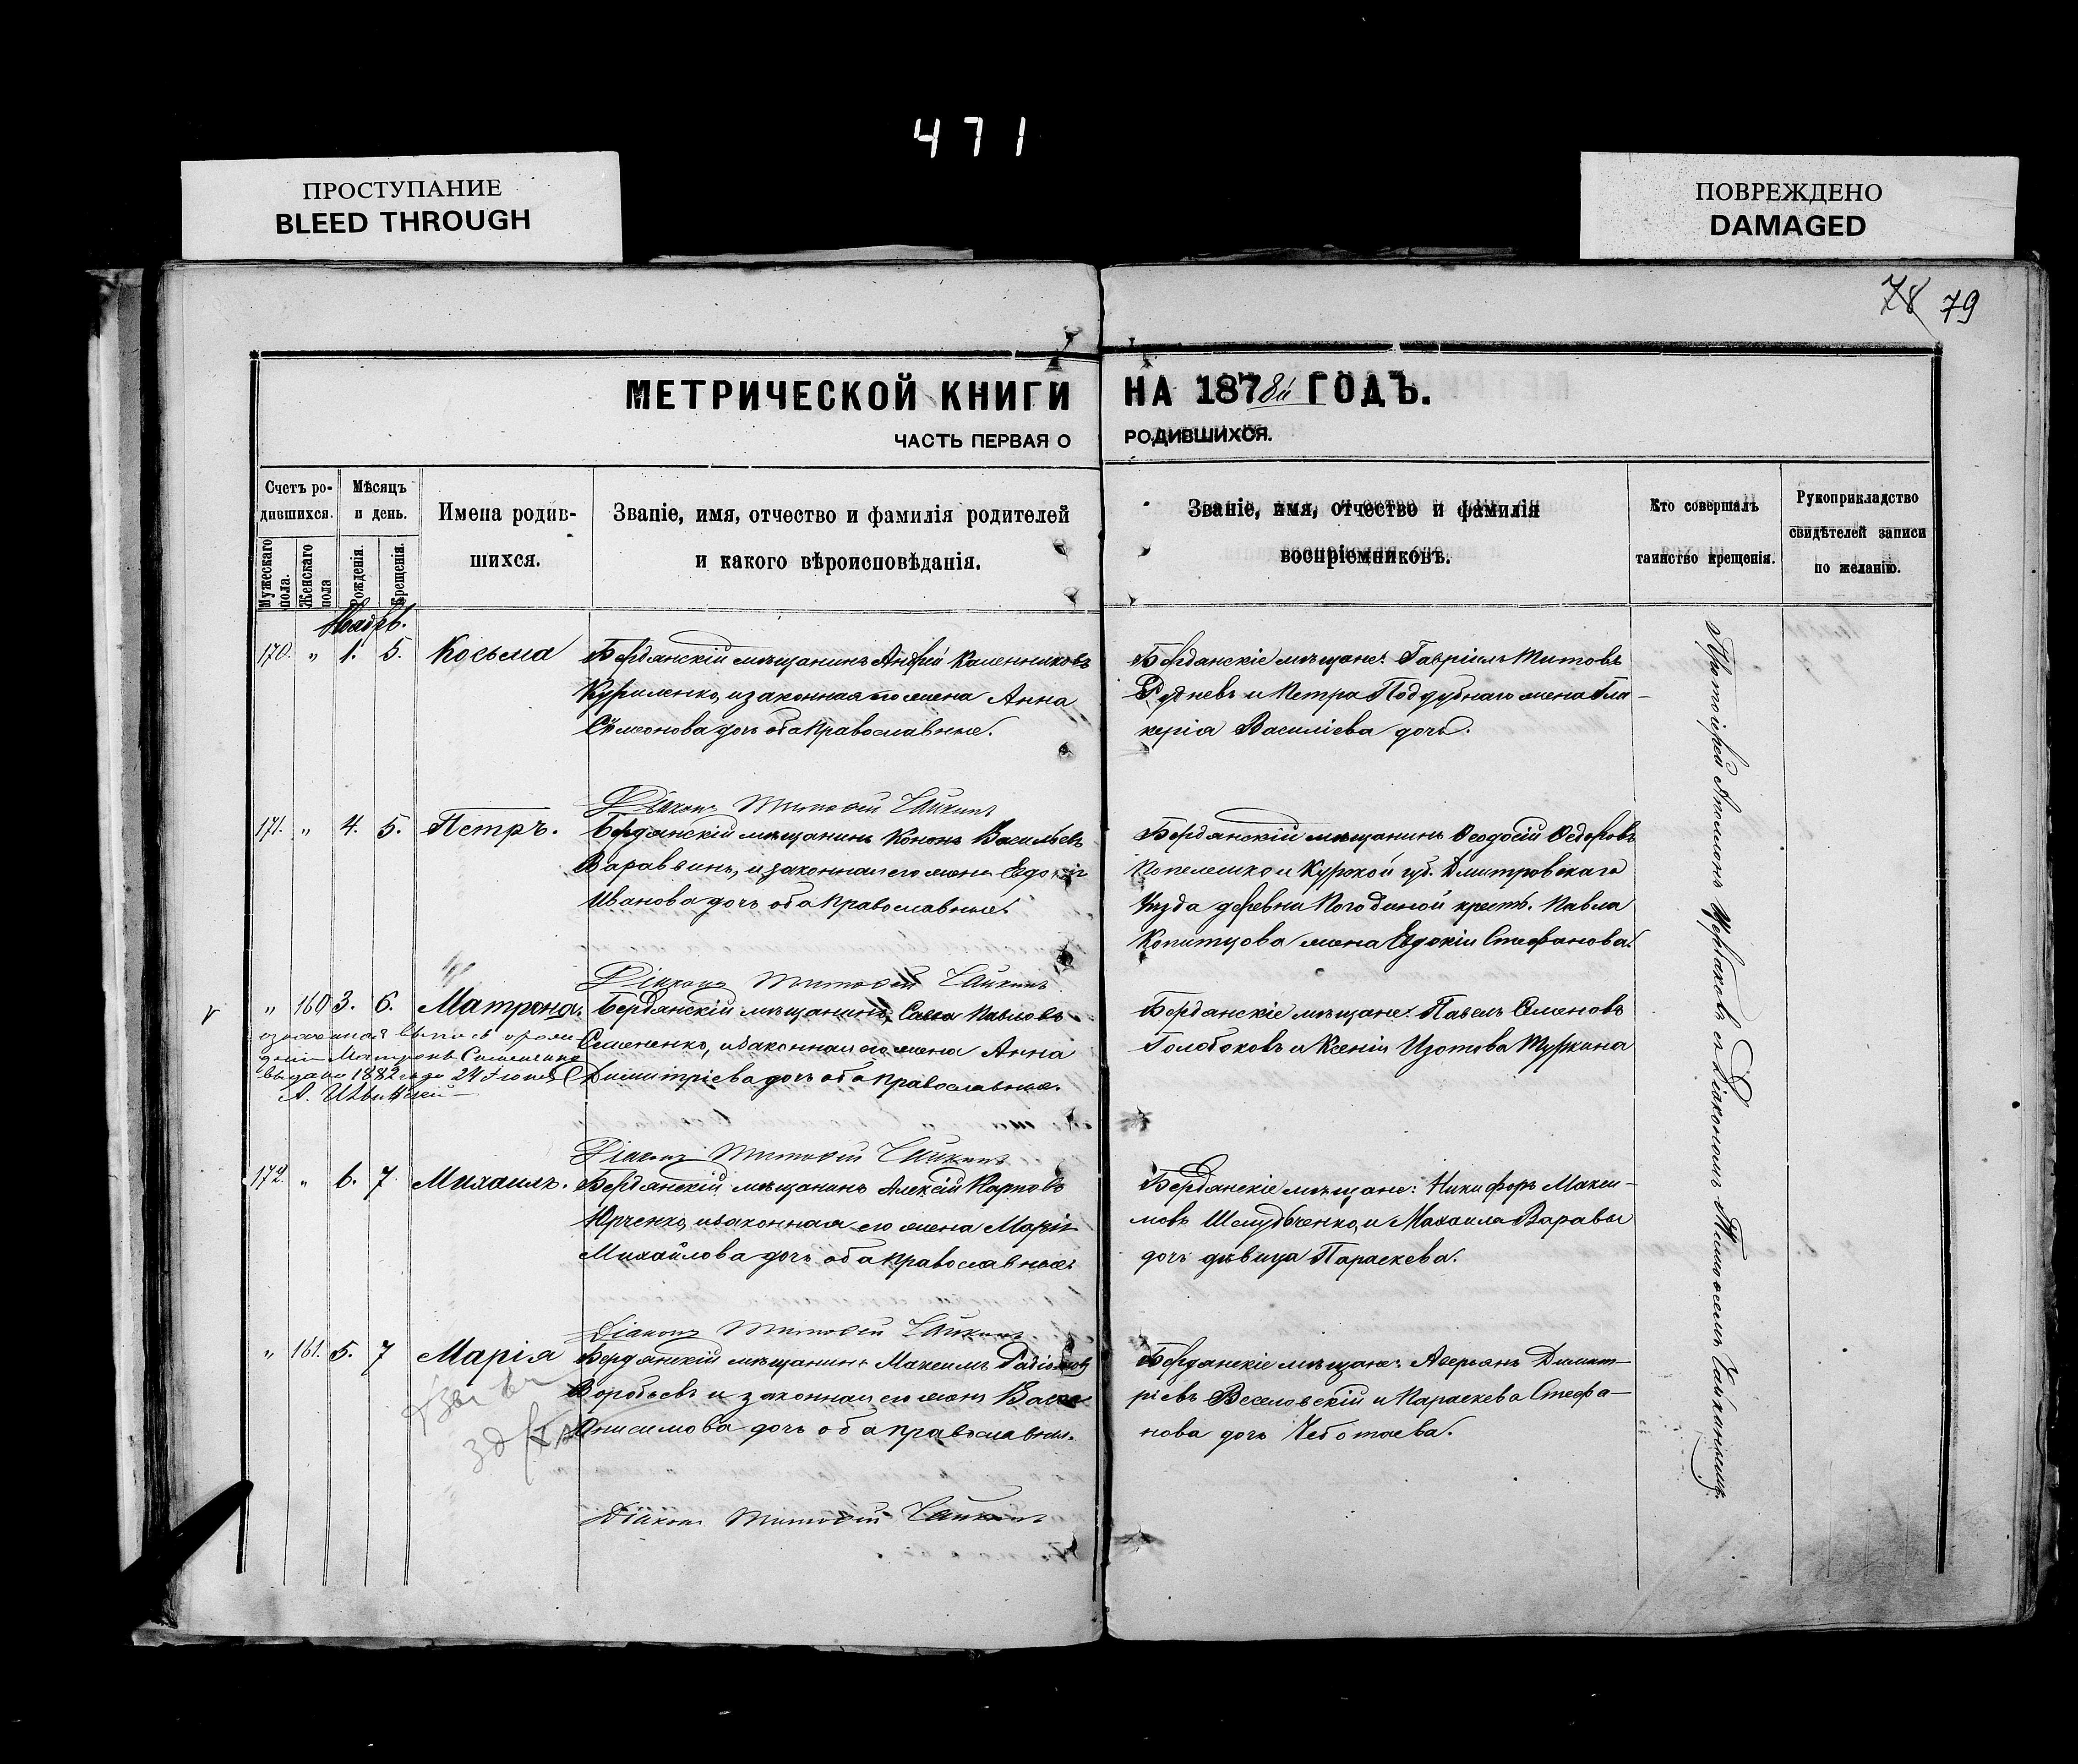 471
ПРОСТУПАНИЕ
BLEED THROUGH
ПОВРЕЖДЕНО
DAMAGED
78 79
МЕТРИЧЕСКОЙ КНИГИ НА 1878й ГОДЪ.
ЧАСТЬ ПЕРВАЯ О РОДИВШИХСЯ.
Счетъ ро-
дившихся.
Мужескаго
пола.
Женскаго
пола
Мѣсяцъ
и день.
Рожденія.
Крещенія.
Имена родив-
шихся.
Званіе, имя, отчество и фамилія родителей
и какого вѣроисповѣданія.
Званіе, имя, отчество и фамилія
воспріемниковъ.
Кто совершалъ
таинство крещенія.
Рукоприкладство
свидѣтелей записи
по желанію.
170. " 1. 5. Косьма
Бердянскій мѣщанинъ Андрей
Куриленко, и законная жена Анна
Сѵмеонова дочь оба православные.
Бердянскіе мѣщане: Гавріилъ Титовъ
и Петра Поддубнаго жена Гли-
керія Василіева дочь.
Діаконъ Тимофей Чайкинъ
171. " 4. 5. Петръ.
Бердянскій мѣщанинъ Кононъ Васильевъ
и законная его жена
Иванова дочь оба православные.
Бердянскій мѣщанинъ Феодосій Федоровъ
и Курской губ. Дмитровскаго
уѣзда деревни Погодиной крест. Павла
Копитцова жена Евдокія Стефанова.
Діаконъ Тимофей Чайкинъ
" 160 3. 6. Матрона.
Бердянскій мѣщанинъ, Савва Павловъ
Семененко, и законная его жена Анна
Димитріева дочь оба православные.
выдано 1882 года 24 Іюня
Бердянскіе мѣщане: Павелъ Семеновъ
Голобоковъ и Ксенія Изотова Туркина
Діаконъ Тимофей Чайкинъ
172. " 6. 7. Михаилъ.
Бердянскій мѣщанинъ Алексій Карповъ
Юрченко, и законная его жена Марія
Михайлова дочь оба православные.
Бердянскіе мѣщане: Никифоръ Макси-
мовъ и Михаила Варавы
дочь дѣвица Параскева.
Діаконъ Тимофей Чайкинъ
" 161. 5. 7 Марія
Бердянскій мѣщанинъ Максимъ
Воробьевъ и законная его жена
Онисимова дочь оба православные.
Бердянскіе мѣщане: Аверьянъ Димит-
ріевъ Веселовскій и Параскева Стефа-
нова дочь Чеботаева.
Діаконъ Тимофей Чайкинъ
Протоіерей Аполлонъ съ Діакономъ Тимофеемъ Чайкинымъ.